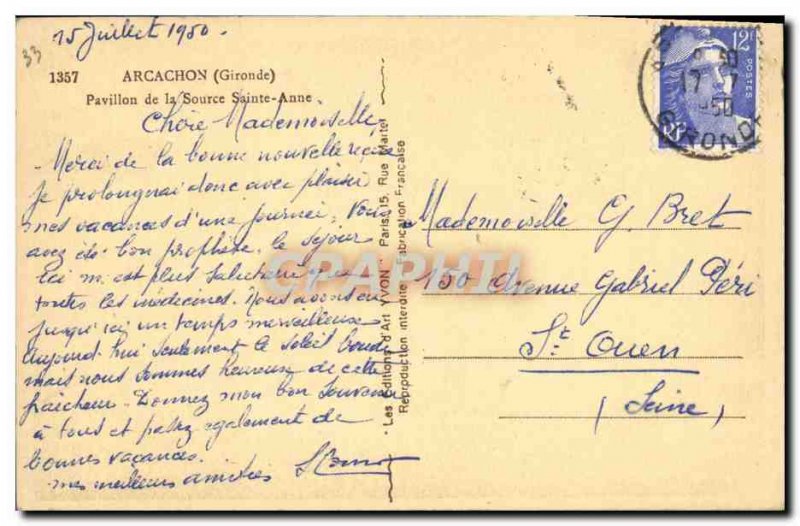 15 Juillet 1950.
33
1357 ARCACHON (Gironde)
Pavillon de la Source Sainte-Anne
Chère Mademoiselle,
Merci de la bonne nouvelle reçue
Je prolongerai donc avec plaisir
mes vacances d'une journée. Vous
avez été bon prophète, le séjour
ici m'est plus salutaire que
toutes les médecines. Nous avons eu
jusqu'ici un temps merveilleux
aujourd'hui seulement le soleil boude
mais nous sommes heureuse de cette
fraîcheur. Donnez mon bon souvenir
à tous et passez également de
bonnes vacances.
mes meilleurs amitiés
Les Éditions d'Art YVON. Paris, 15, Rue Martel
Reproduction interdite. Fabrication Française
12F
POSTES
17 - 7
50
GIRONDE
Mademoiselle G. Bret
150 Avenue Gabriel Péri
St Ouen
(Seine)
CPAPHIL